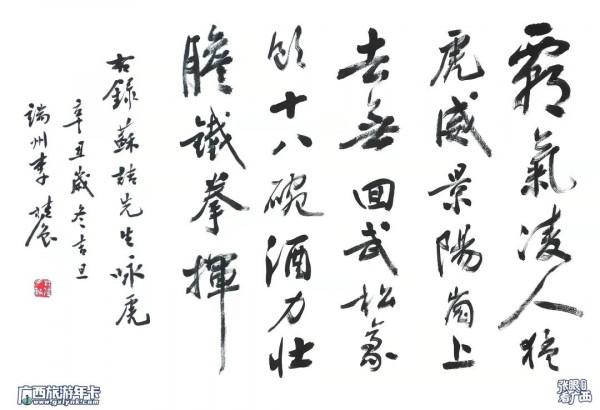 霸氣凌人猛
虎威景陽崗上
去無回武松豪
飲十八碗酒力壯
膽鐵拳揮
右錄蘇先生咏虎
辛丑歲冬吉旦
端州李
广西旅游年卡
www.gxlynk.com
张眼
看广西